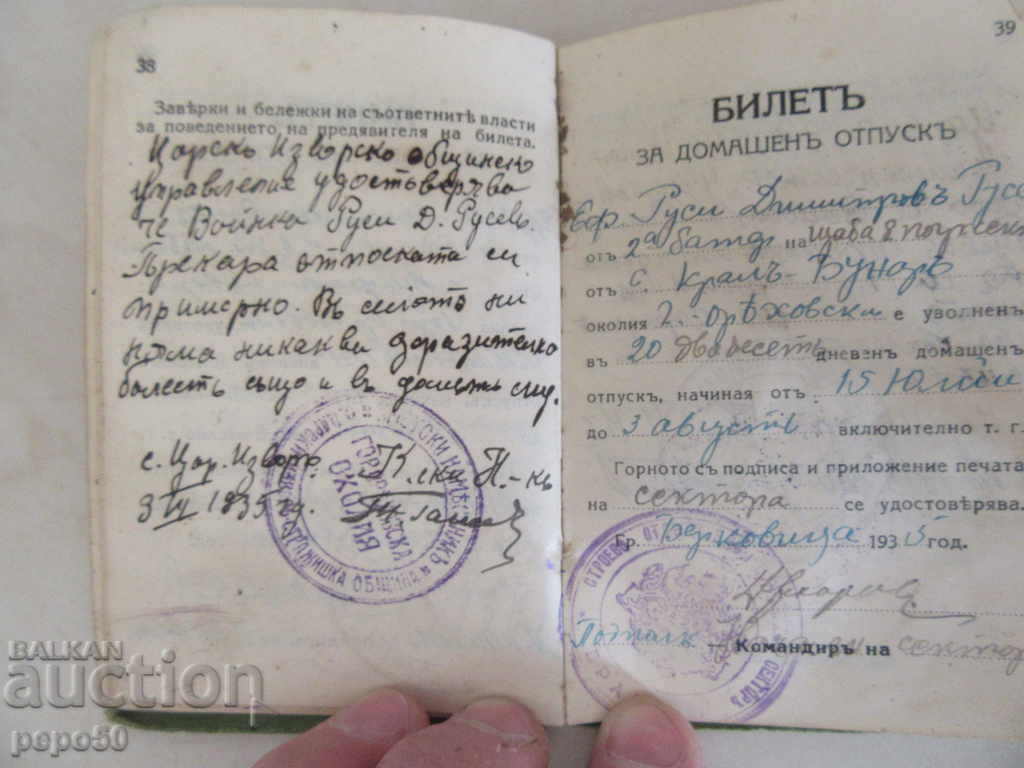 38
Завѣрки и бележки на съответнитѣ власти
за поведението на предявителя на билета.
Царско Изворско общинско
управление удостоверява
че Войника Руси Д. Русевъ.
Прекара отпоската си
примерно. Въ селото ни
няма никакви заразително
болесть също и въ домътъ му.
с. Цар. Изворъ К. ски Н.-къ
3 1935 год.
ОКОЛИЯ
ОБЩИНА
39
БИЛЕТЪ
ЗА ДОМАШЕНЪ ОТПУСКЪ
Еф. Руси Димитровъ Русе
отъ 2а на щаба 8
отъ с. Кралъ-Бунаръ
околия Г.-Орѣховска е уволненъ
въ 20 двадесеть дневенъ домашенъ
отпускъ, начиная отъ 15 Юлий
до 3 августъ включително т. г.
Горното съ подписа и приложение печата
на сектора се удостовѣрява.
Гр. Берковица 1935 год.
Командиръ на сектора
СТРОЕВЪ ОТ
СЕКТОРЪ
BALKAN
auction
pepo50